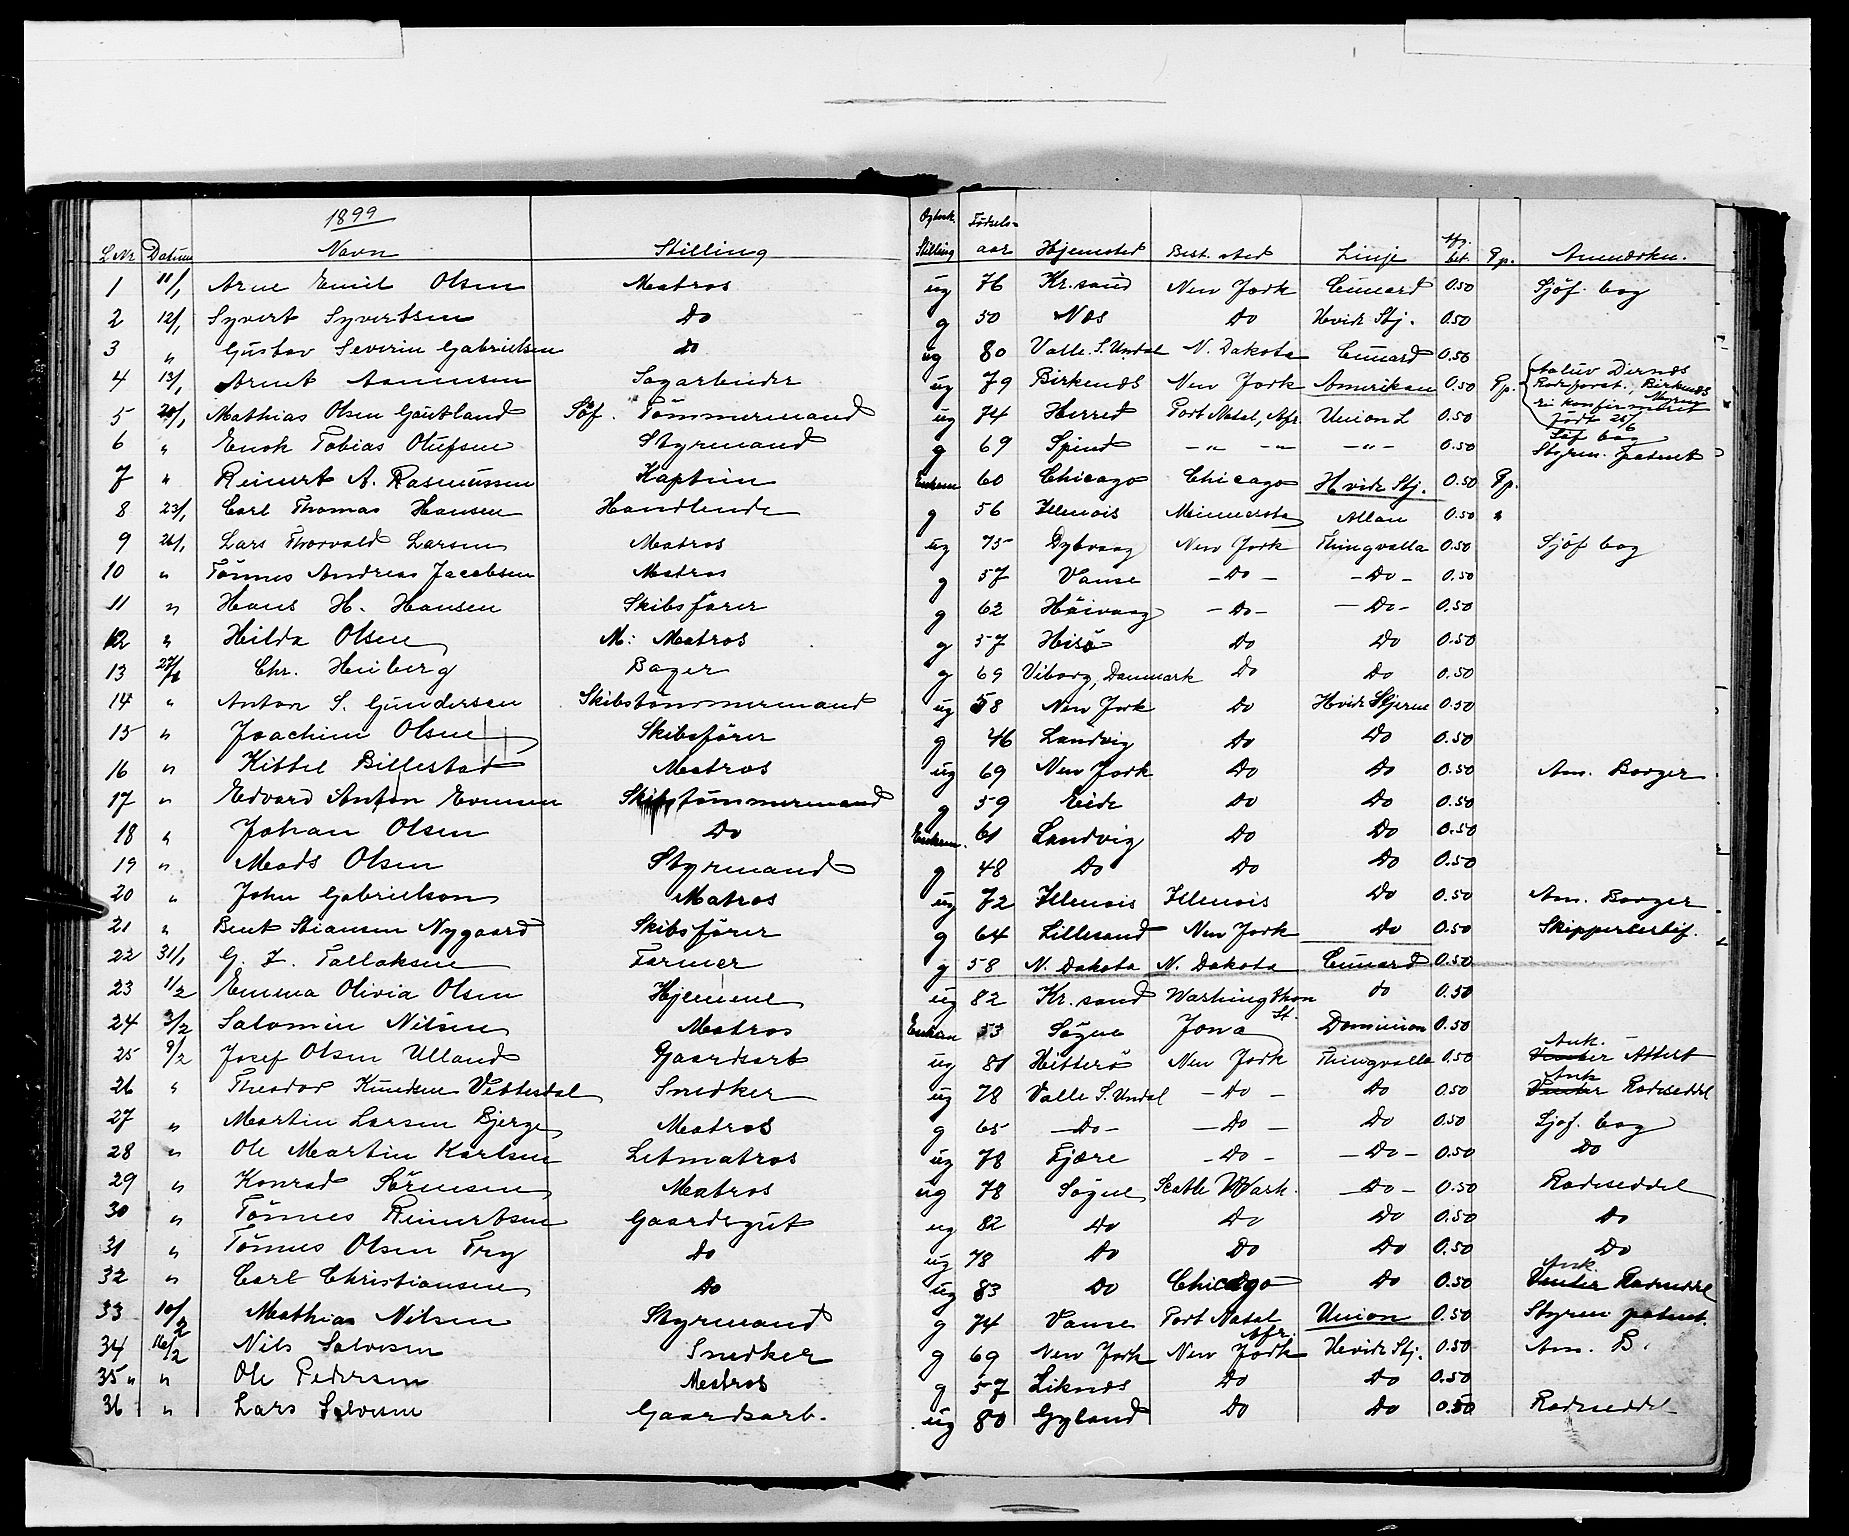 1899
L.Nr Datum Navn Stilling Stilling Födsels-aar Hjemsted Best. sted Linje bet. Pp. Anmærkn.
1 11/1 Arne Emil Olsen Matros ug 76 Kr.sand New York Cunard 0.50 Sjöf. bog
2 12/1 Syvert Syvertsen Do g 50 Næs Do Hvide Stj. 0.50
3 " Gustav Severin Gabrielsen do ug 80 Valle. S. Undal N. Dakota Cunard 0.50
4 13/1 Arnt Aanensen Sagarbeider ug 79 Birkenæs New York Amerikan 0.50 Pp.
5 20/1 Mathias Olsen Gautland Söf. Tömmermand ug 74 Herred Port Natal, Afr. Union L 0.50 ei konfirmeret Födt 25/6 Söf bog
6 " Enok Tobias Olufsen Styrmand g 69 Spind -"- -"- -"- 0.50 Styrm. patent
7 " Reinert A. Rasmussen Kaptein Enkem 60 Chicago Chicago Hvide Stj. 0.50 Pp.
8 23/1 Carl Thomas Hansen Handlende g 56 Illenois Minnesota Allan 0.50 "
9 26/1 Lars Thorvald Larsen Matros ug 75 Dybvaag New York Thingvalla 0.50 Sjöf bog
10 " Tönnes Andreas Jacobsen Matros g 57 Vanse - Do - - Do - 0.50
11 " Hans H. Hansen Skibsförer g 62 Höivaag - Do - - Do - 0.50
12 " Hilda Olsen M: Matros g 57 Hisö Do Do 0.50
13 27/1 Chr. Heiberg Bager g 69 Viborg, Danmark Do Do 0.50
14 " Anton S. Gundersen Skibstömmermand ug 58 New York Do Hvide Stjerne 0.50
15 " Joachim Olsen Skibsförer g 46 Landvig Do Do 0.50
16 " Kittel Billestad Matros ug 69 New York Do Do 0.50 Am. Borger
17 " Edvard Anton Evensen Skibstömmermand g 59 Eide Do Do 0.50
18 " Johan Olsen Do Enkem. 61 Landvig Do Do 0.50
19 " Mads Olsen Styrmand g 48 Do Do Do 0.50
20 " John Gabrielson Matros ug 72 Illenois Illenois Do 0.50 Am. Borger
21 " Bent Stiansen Nygaard Skibsförer g 64 Lillesand New York Do 0.50 Skippertertif.
22 31/1 G. T. Tallaksen Farmer g 58 N. Dakota N. Dakota Cunard 0.50
23 1/2 Emma Olivia Olsen Hjemme ug 82 Kr. sand Washingthon St. do 0.50
24 3/2 Salomin Nilsen Matros Enkem 53 Søgne Jova Dominion 0.50
25 9/2 Josef Olsen Ulland Gaardsarb ug 81 Hitterö New York Thingvalla 0.50 Ank. Attest
26 " Theodor Knudsen Vettesdal Snedker ug 78 Valle S. Undal - Do - Do 0.50 Ank Rodeseddel
27 " Martin Larsen Bjerge Matros g 65 - Do - - Do - Do 0.50 Sjöf. bog
28 " Ole Martin Karlsen Letmatros ug 78 Fjære - Do - - Do - 0.50 Do
29 " Konrad Sörensen Matros ug 78 Søgne Seatle Wash. - Do - 0.50 Rodeseddel
30 " Tönnes Reinertsen Gaardsgut ug 82 Do Do Do 0.50 Do
31 " Tönnes Olsen Try Do ug 78 Do Do Do 0.50 Do
32 " Carl Christiansen Do ug 83 Do Chicago Do 0.50 Ank. Rodeseddel
33 10/2 Mathias Nilsen Styrmand g 74 Vanse Port Natal Afr. Union 0.50 Styrm patent.
34 16/2 Nils Salvesen Snedker g 69 New York New York Hvide Stj. 0.50 Am. B.
35 " Ole Pedersen Matros g 57 Liknæs Do Do 0.50
36 " Lars Salvesen Gaardsarb. ug 80 Gyland Do Do 0.50 Rodeseddel